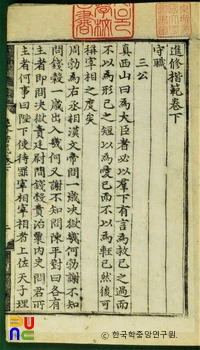 進修楷範卷下
守職
三公
真西山曰爲大臣者必以羣下有言爲救已之過而
不以爲形已之短以爲愛已而不以爲輕已然後可
稱宰相之度矣
周勃爲右丞相漢文帝問一歲决獄幾何勃謝不知
問錢穀一歲出入幾何又謝不知問陳平對曰各有
主者即問决獄責廷尉問錢穀責治粟內史問君所
主者何事曰陛下使待罪宰相宰相者上佐天子理
ⓒ 한국학중앙연구원